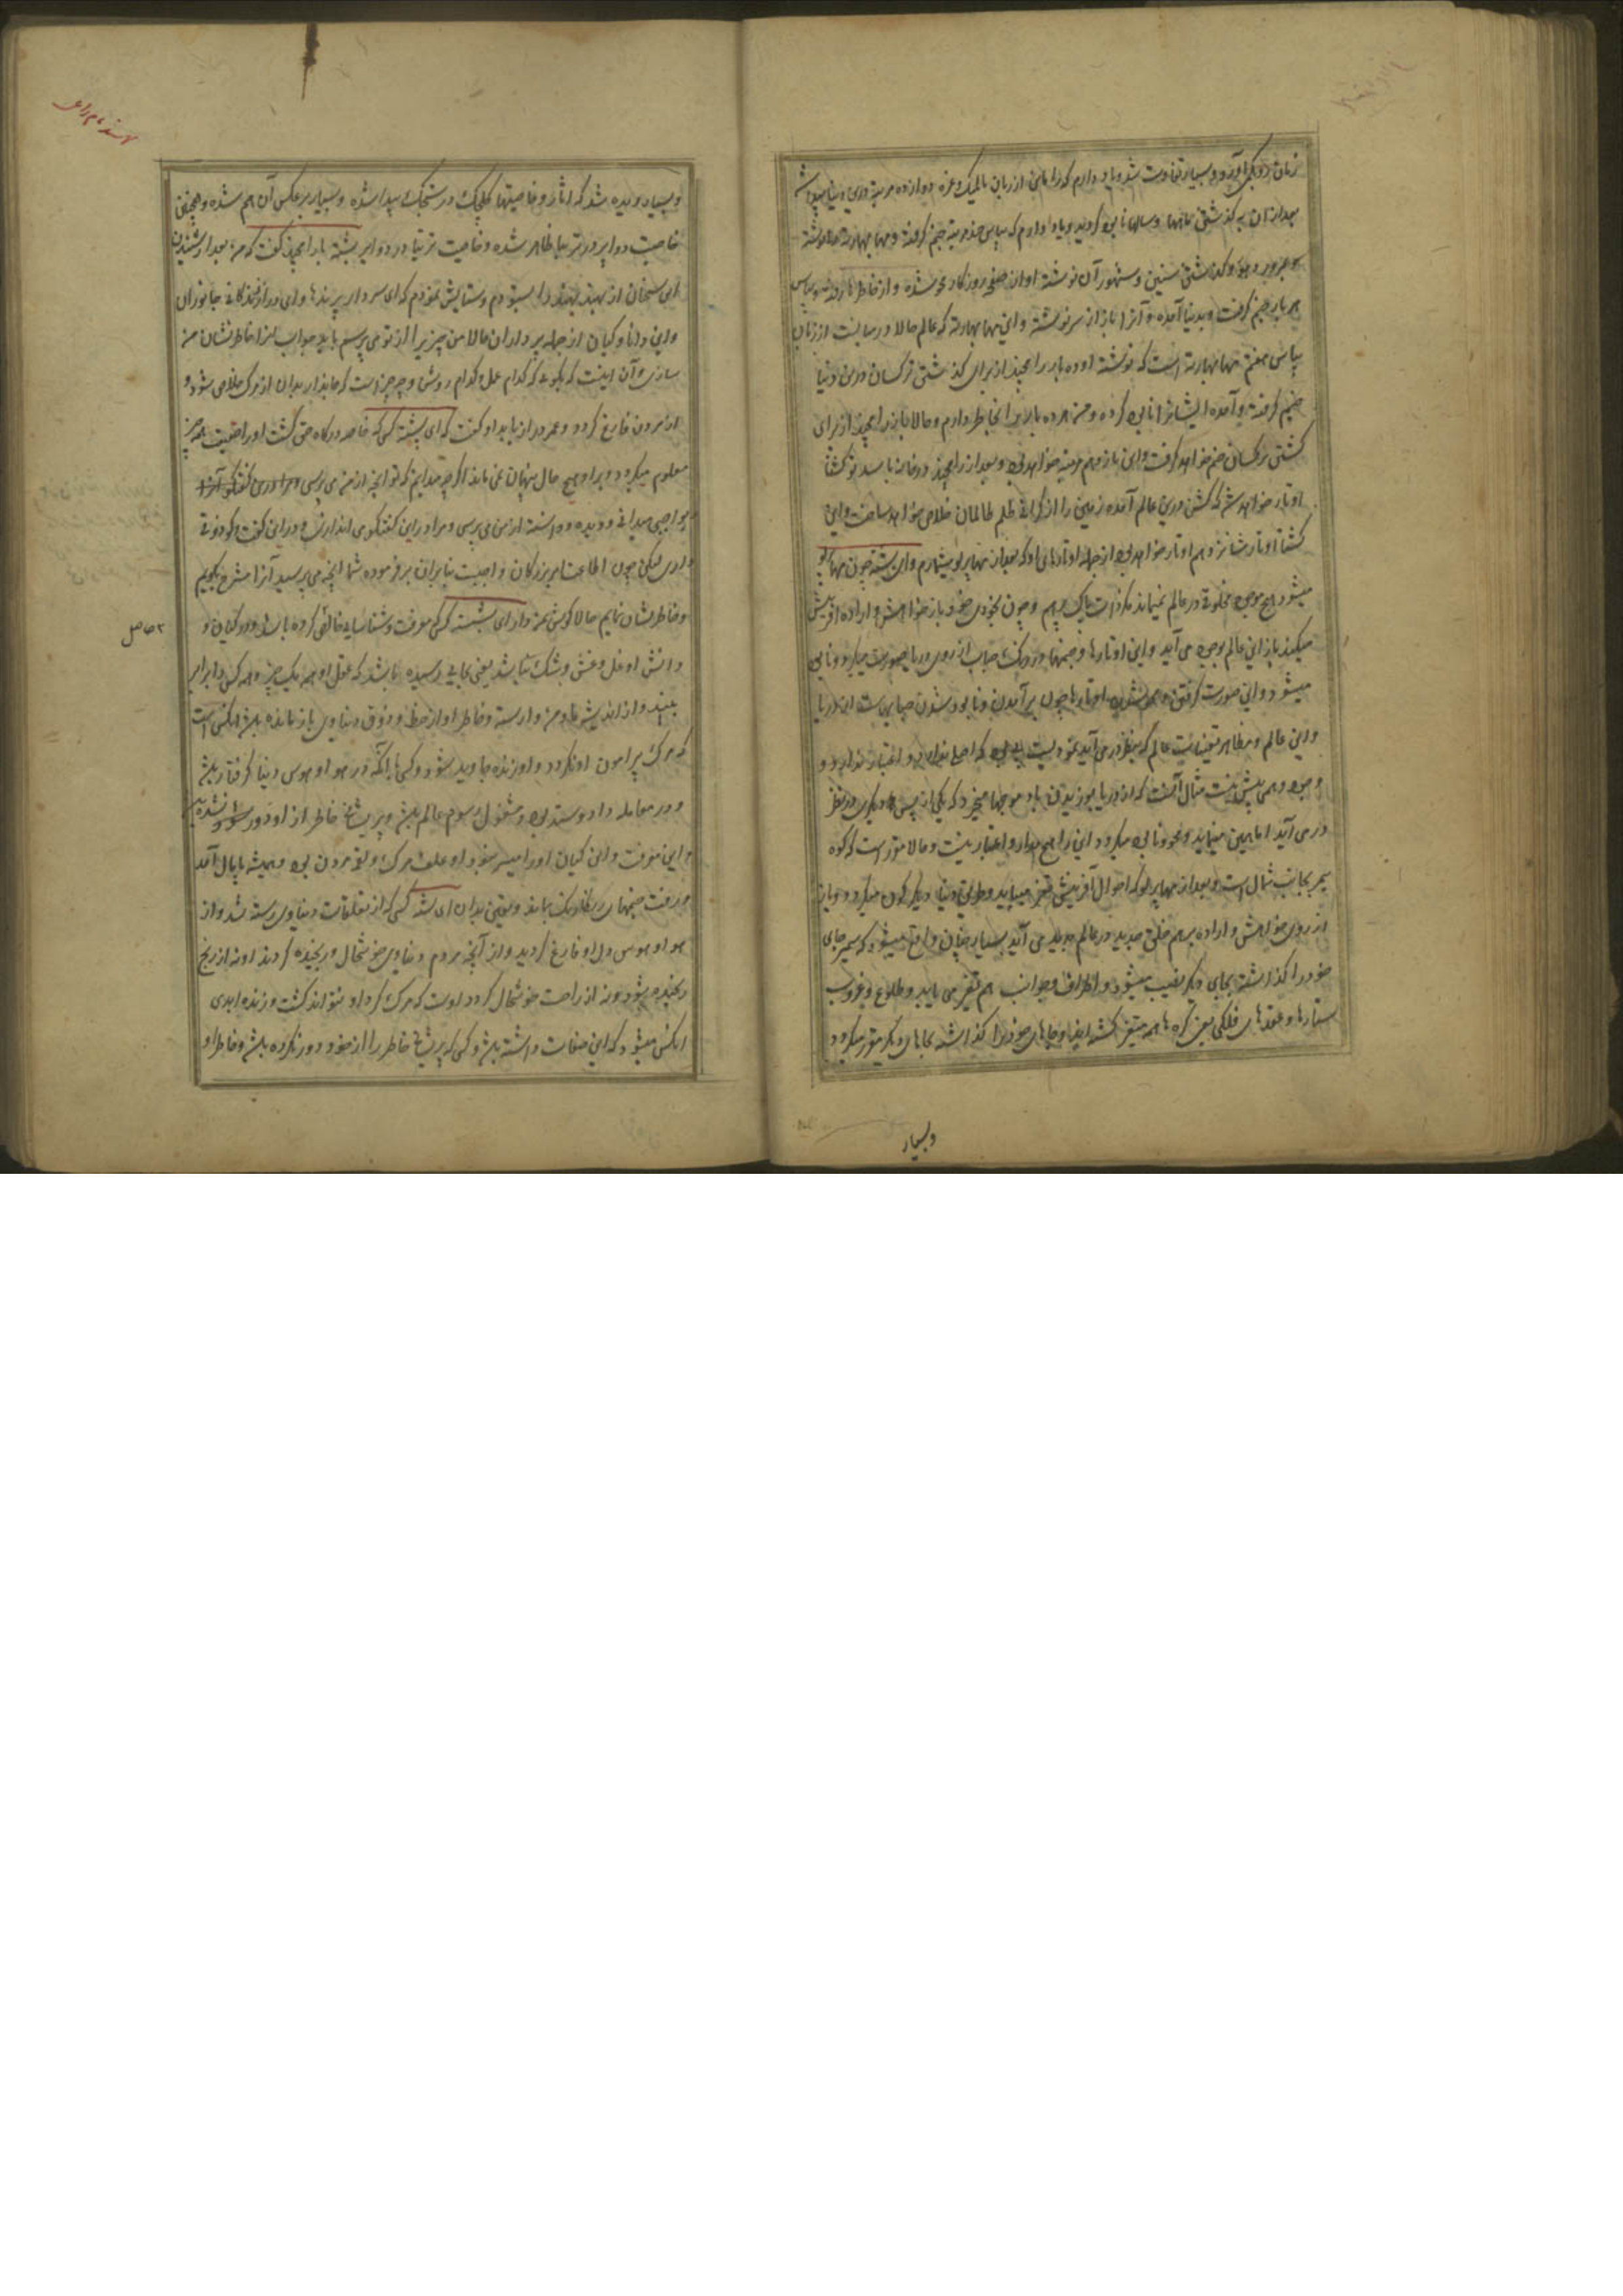 زمان دیگر آورد و بسیار تفاوت شد و یاد دارم که راماین از زبان بالمیک و غیره دوازده مرتبه درین دنیا پیدا شد
بعد از آن به گذشتن ماهها و سالها نابود گردید و یاد دارم که بیاس چند مرتبه جنم گرفته و مهابهارته را نوشته
و بمرور دهور و گذشتن سنین و شهور آن نوشته او از صفحه روزگار محو شده و از خاطرها رفته و بیاس
هر بار جنم گرفت و بدنیا آمده و آنرا باز از سر نوشته و این مهابهارته که عالم حالا در میانست از زبان
بیاس هفتم مهابهارته است که نوشته او ده بار رامچند از برای گذشتن نرکسان درین دنیا
جنم گرفته و آمده ایشانرا نابود کرده و من هر ده بار را بخاطر دارم و حالا باز رامچند از برای
کشتن نرکسان جنم خواهد گرفت و این یازدهم مرتبه خواهد بود و بعد از رامچند در خانه باسدیو کشن
اوتار خواهد شد که کشن درین عالم آمده زمین را از گرانی ظلم ظالمان خلاص خواهد ساخت و این
کشن اوتار شانزدهم اوتار خواهد بود از جمله اوتارهای او که بعد از مهاپرلو میشمارم و ای بشسته چون مهاپرلو
میشود هیچ موجود مخلوق در عالم نمیماند مگر ذات پاک برهم و چون بخودی خود باز خواهش و اراده آفرینش
میکند باز این عالم بوجود می آید و این اوتارها و جنمها در رنگ حباب از روی دریا صورت میگیرد و نابود
میشود و این صورت گرفتن و محو شدن اوتارها چون برآمدن و نابود شدن حبابهاست از دریا
و این عالم و مظاهر تعینات عالم که بنظر درمی آید نمودیست بی بود که اصلی ندارد و اعتباری ندارد و
وجود وهمی بیش نیست مثال آنست که از دریا بوزیدن باد موجها میخیزد که یکی از پس دیگری در نظر
درمی آید اما همین مینماید و محو و نابود میگردد این را هیچ مدار و اعتبار نیست و حالا مقرر است که کوه
سمیر بجانب شمال است و بعد از مهاپرلو که احوال آفرینش تغیر میابد و طریق دنیا دیگرگون میگردد و باز
از روی خواهش و اراده برهم خلق جدید در عالم پدید می آید بسیار چنان واقع میشود که سمیر جای
خود را گذاشته بجای دیگر نصیب میشود و اطراف و جوانب هم تغیر می یابد و طلوع و غروب
ستارها و عقدهای فلکی یعنی گره ها همه متغیر گشته ایضا و جاهای خود را گذاشته بجاهای دیگر مقرر میگردد
و بسیار
و بسیار دیده شد که آثار و خاصیتهای کلجک در ستجک پیدا شده و بسیار برعکس آن هم شده و همچنین
خاصیت دواپر در ترتیا ظاهر شده و خاصیت ترتیا در دواپر بشسته با رامچند گفت که من بعد از شنیدن
این سخنان از بهسند بهسند را ستودم و ستایش نمودم که ای سردار پرندها و ای دراز زندگانی جانوران
و این دانا و گیان از جمله پرداران حالا من چیزی را از تو می پرسم باید جواب مرا خاطرنشان من
سازی و آن اینست که بگویی که کدام عمل و کدام روش و چه چیز است که جاندار بدان از مرگ خلاص شود و
از مردن فارغ گردد و عمر دراز یابد او گفت که ای بشسته کسی که خاصه درگاه حق گشت او را حقیقت همه چیز
معلوم میگردد و بر او هیچ حال پنهان نمی ماند اگرچه میدانم که تو آنچه از من می پرسی و مرا درین گفتگو
بواجبی میدانی و دیده و دانسته از من می پرسی و مرا درین گفتگو می اندازی و درین گفت و گو ذوقی
داری لیکن چون اطاعت امر بزرگان واجبست بنابران برفرموده شما آنچه می پرسید آنرا مشرح بگویم
و خاطرنشان نمایم حالا گوش بمن دار ای بشسته کسی که معرفت و شناسائی خالق کرده باشد و در گیان و
۲ حاصل
دانش او خلل و غش و شک نباشد یعنی بجایی رسیده باشد که عقل او همه یک چیز و همه کس را برابر
بیند و از اندیشه ما و من وارسته و خاطر او از حظ و ذوق دنیاوی بازمانده باشد آنکس است
که مرگ پیرامون او نگردد و او زنده جاوید شود و کسی را که در هوا و هوس دنیا گرفتار باشد
و در معامله داد و ستد بود و مشغول رسوم عالم باشد و پریشانی خاطر از او دور نشده باشد
و این معرفت و این گیان او را میسر نبود او علف مرگ و لقمه مردن بود و همیشه پایمال آمد
و رفت جنمهای رنگارنگ باند و یقین بدان ای بشسته کسی که از تعلقات دنیاوی رسته شد و از
هوا و هوس دل او فارغ گردید و از آنچه مردم دنیاوی خوشحال و رنجیده گردند او نه از رنج
رنجیده بشود و نه از راحت خوشحال گردد اوست که مرگ گرد او نتواند گشت و زنده ابدی
آنکس میشود که این صفات داشته باشد و کسی که پریشانی خاطر را از خود دور نکرده باشد و خاطر او